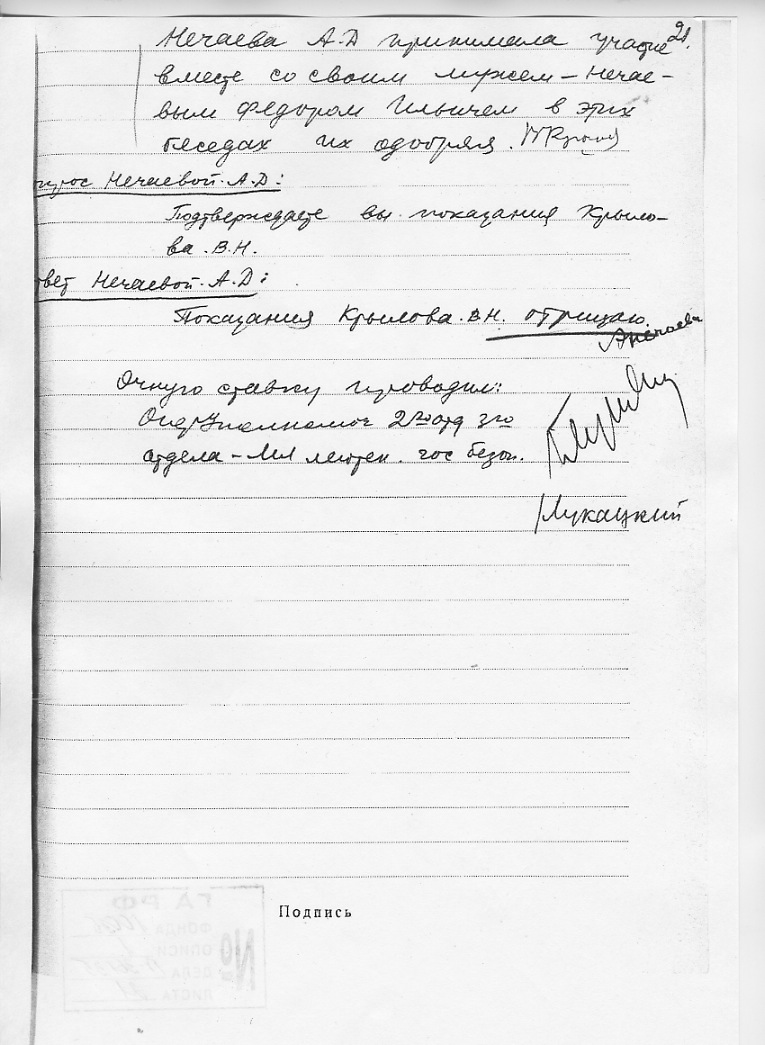 21.
Нечаева А.Д принимала участие
вместе со своим мужем – Нечае-
вым Федором Ильичем в этих
беседах их одобряя. ВКрылов
прос Нечаевой А.Д:
Подтверждаете вы показания Крыло-
ва. В.Н.
вет Нечаевой. А.Д:
Показания Крылова. В.Н. отрицаю.
АНечаева
Очную ставку проводил:
ОперУполномоч 2го отд 3го
отдела – Мл лейтен. гос безоп.
/Лукацкий
Подпись
ГАРФ
ФОНДА
ОПИСИ
ДЕЛА
ЛИСТА 21
№